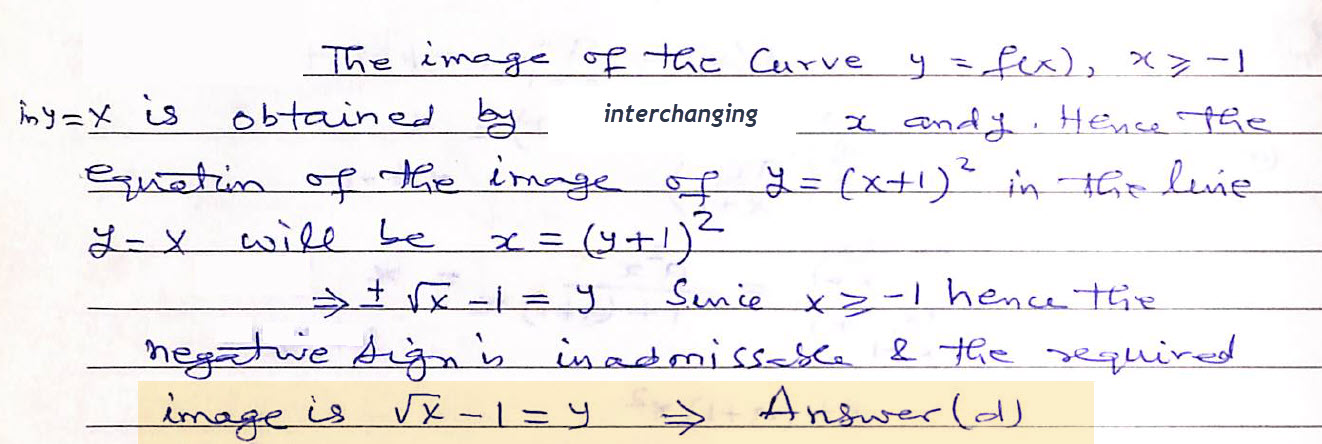 The image of the Curve y = f(x), x ⩾ -1
in y = x is obtained by interchanging x and y. Hence the
equation of the image of y = (x+1)² in the line
y = x will be x = (y+1)²
⇒ ± √x - 1 = y Since x ⩾ -1 hence the
negative sign is inadmissable & the required
image is √x - 1 = y ⇒ Answer (d)